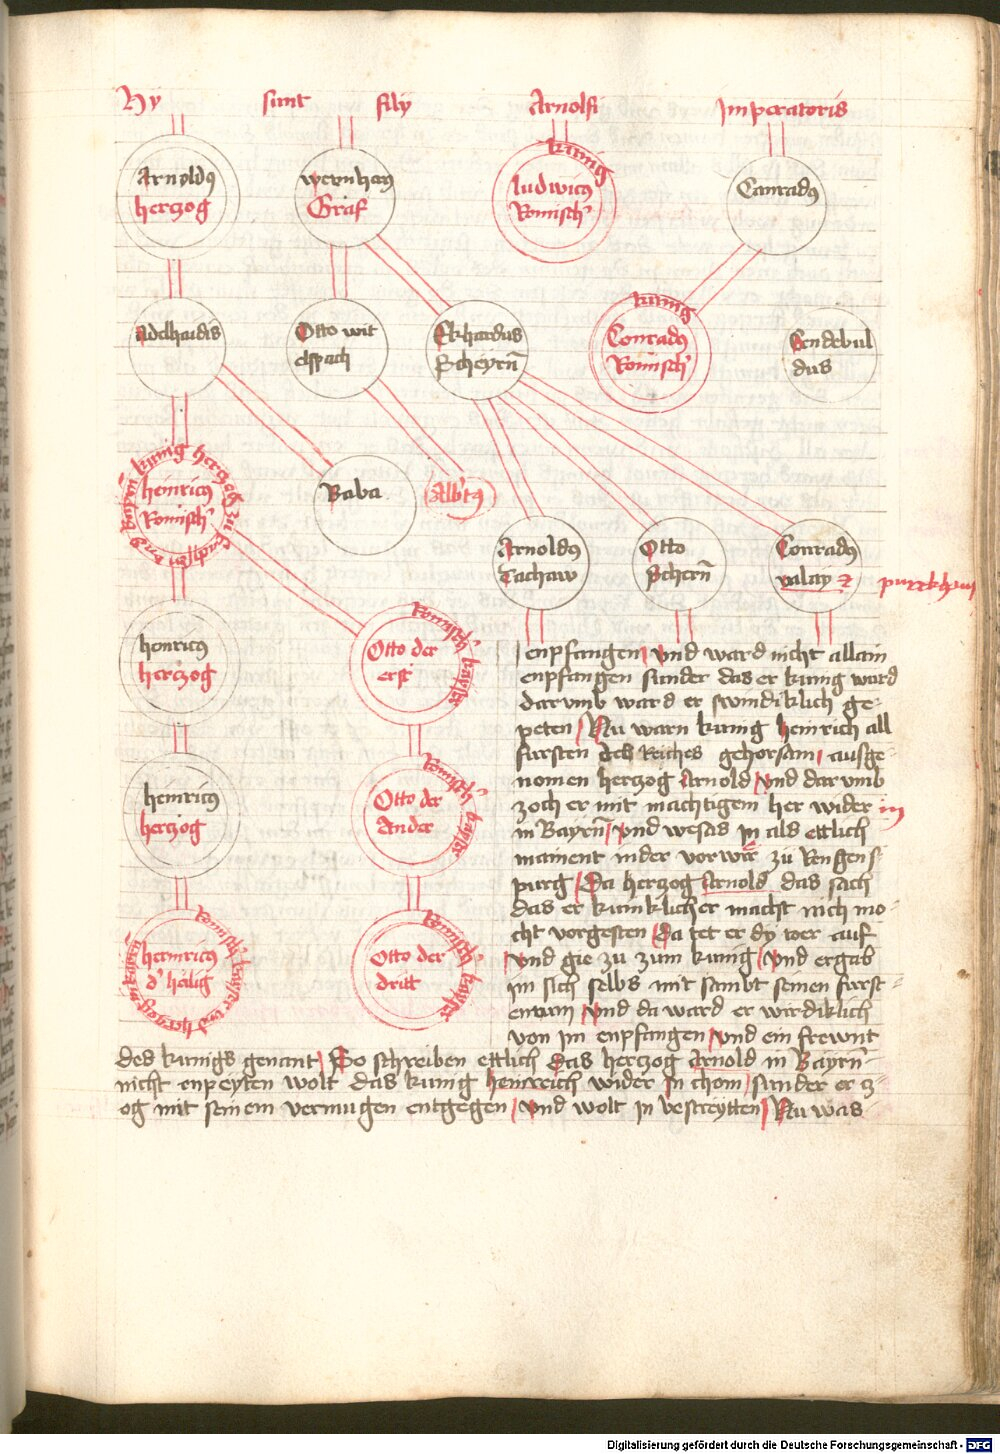 Hy sunt filÿ Arnolfi Imperatoris
Arnoldꝰ
herczog
wernherꝰ
Graf
kunig
ludwicꝰ
Romisch'
Conradꝰ
Adelhaidis
Otto wit
elspach
Ekhardus
Scheyrn̄
kunig
Conradꝰ
Romisch'
Gendebul
dus
kunig herczog zu
heinricꝰ
Romisch'
Baba
Alb'tꝰ
Arnoldꝰ
Tachaw
Otto
Schern̄
Conradꝰ
valay
heinricꝰ
herczog
Romisch' kayser
Otto der
erst
heinricꝰ
herczog
Romisch' kayser
Otto der
Ander
Romisch' kayser und herczog in bayrn̄
heinricꝰ
d' heilig
Romisch' kayser
Otto der
dritt
enpfangen / vnd ward nicht allain
enpfangen sunder das er kunig ward
darumb ward er swindiklich ge-
peten / Nu warn kunig heinrich all
fursten des Reiches gehorsam / ausge
nomen herczog Arnold / vnd darumb
zoch er mit machtigem her wider in
in Bayrn̄ / vnd wesas in als ettlich
mainent in der vorwär zu Rengens-
purg / Da herczog Arnold das sach
das er kuniklicher macht nich mo-
cht vorgesten / Da tet er dy toer auf
/ vnd gie zu zum kunig / vnd ergab
im sich selbs mit sambt seinen furst-
entum / vnd da ward er wirdiklich
von im enpfangen / vnd ein frewnt
des kunigs genant / So schreiben ettlich das herczog Arnold in Bayrn̄
nicht enpeyten wolt das kunig heinreich wider in chom / sunder er z-
og mit seinem vermugen entgegen / vnd wolt in bestreytten / Nu was
Digitalisierung gefördert durch die Deutsche Forschungsgemeinschaft - DFG